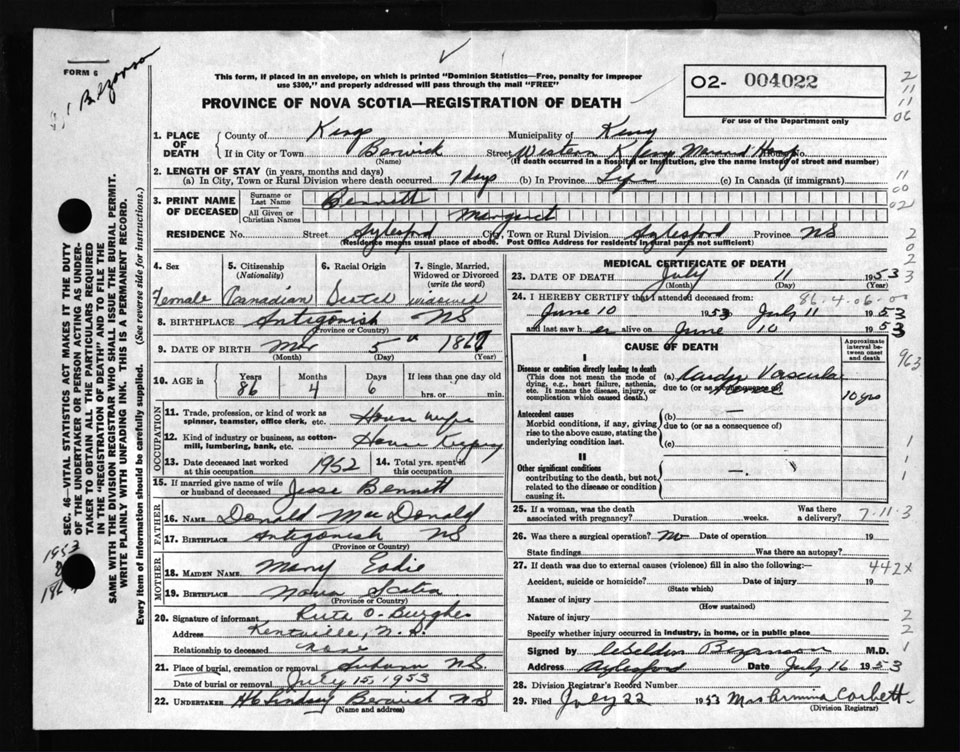 FORM 6
This form, if placed in an envelope, on which is printed "Dominion Statistics—Free, penalty for improper
use $300," and properly addressed will pass through the mail "FREE"
O2- 004022
For use of the Department only
PROVINCE OF NOVA SCOTIA—REGISTRATION OF DEATH
1. PLACE OF DEATH
County of Kings Municipality of Kings
If in City or Town Berwick Street Western Kings Memorial Hosp House No.
(Name) (If death occurred in a hospital or institution, give the name instead of street and number)
2. LENGTH OF STAY (in years, months and days)
(a) In City, Town or Rural Division where death occurred 7 days (b) In Province Life (c) In Canada (if immigrant)
3. PRINT NAME OF DECEASED
Surname or Last Name Bennett
All Given or Christian Names Margaret
RESIDENCE No. Street Aylesford City, Town or Rural Division Aylesford Province NS
(Residence means usual place of abode. Post Office Address for residents in rural parts not sufficient)
4. Sex Female
5. Citizenship (Nationality) Canadian
6. Racial Origin Scotch
7. Single, Married, Widowed or Divorced (write the word) widowed
8. BIRTHPLACE Antigonish NS
(Province or Country)
9. DATE OF BIRTH Mar 5th 1867
(Month) (Day) (Year)
10. AGE in Years 86 Months 4 Days 6 If less than one day old
hrs. or min.
OCCUPATION
11. Trade, profession, or kind of work as spinner, teamster, office clerk, etc. House wife
12. Kind of industry or business, as cotton-mill, lumbering, bank, etc. House Keeping
13. Date deceased last worked at this occupation 1952 14. Total yrs. spent in this occupation
15. If married give name of wife or husband of deceased Jesse Bennett
FATHER
16. NAME Donald MacDonald
17. BIRTHPLACE Antigonish NS
(Province or Country)
MOTHER
18. MAIDEN NAME Mary Eadie
19. BIRTHPLACE Nova Scotia
(Province or Country)
20. Signature of informant Ruth O. Burgher
Address Kentville, N.S.
Relationship to deceased none
21. Place of burial, cremation or removal Auburn NS
Date of burial or removal July 15, 1953
22. UNDERTAKER H C Lindsay Berwick NS
(Name and address)
MEDICAL CERTIFICATE OF DEATH
23. DATE OF DEATH July 11 1953
(Month) (Day)
24. I HEREBY CERTIFY that I attended deceased from:
86.4.06.0
June 10 1953 to July 11 1953
and last saw her alive on June 10 1953
CAUSE OF DEATH
Approximate interval between onset and death
I
Disease or condition directly leading to death
(This does not mean the mode of dying, e.g., heart failure, asthenia, etc. It means the disease, injury, or complication which caused death.)
(a) Cardio Vascular Renal
due to (or as a consequence of)
10 yrs
Antecedent causes
Morbid conditions, if any, giving rise to the above cause, stating the underlying condition last.
(b) —
due to (or as a consequence of)
(c)
II
Other significant conditions
contributing to the death, but not related to the disease or condition causing it.
25. If a woman, was the death associated with pregnancy? Duration weeks. Was there a delivery? 7-11-3
26. Was there a surgical operation? No Date of operation 19
State findings Was there an autopsy?
27. If death was due to external causes (violence) fill in also the following:— 442X
Accident, suicide or homicide? Date of injury 19
(State which)
Manner of injury
(How sustained)
Nature of injury
Specify whether injury occurred in industry, in home, or in public place
Signed by Weldon Bezanson M.D.
Address Aylesford Date July 16 1953
28. Division Registrar's Record Number
29. Filed July 22 1953 Mrs Armina Corbett
(Division Registrar)
SEC. 46 VITAL STATISTICS ACT MAKES IT THE DUTY
OF THE UNDERTAKER OR PERSON ACTING AS UNDER-
TAKER TO OBTAIN ALL THE PARTICULARS REQUIRED
IN THE "REGISTRATION OF DEATH" AND TO FILE THE
SAME WITH THE DIVISION REGISTRAR WHO SHALL ISSUE THE BURIAL PERMIT.
WRITE PLAINLY WITH UNFADING INK. THIS IS A PERMANENT RECORD.
Every item of information should be carefully supplied. (See reverse side for instructions.)
1953
2
11
11
06
11
00
02
2
0
2
3
963
1
1
2
2
1